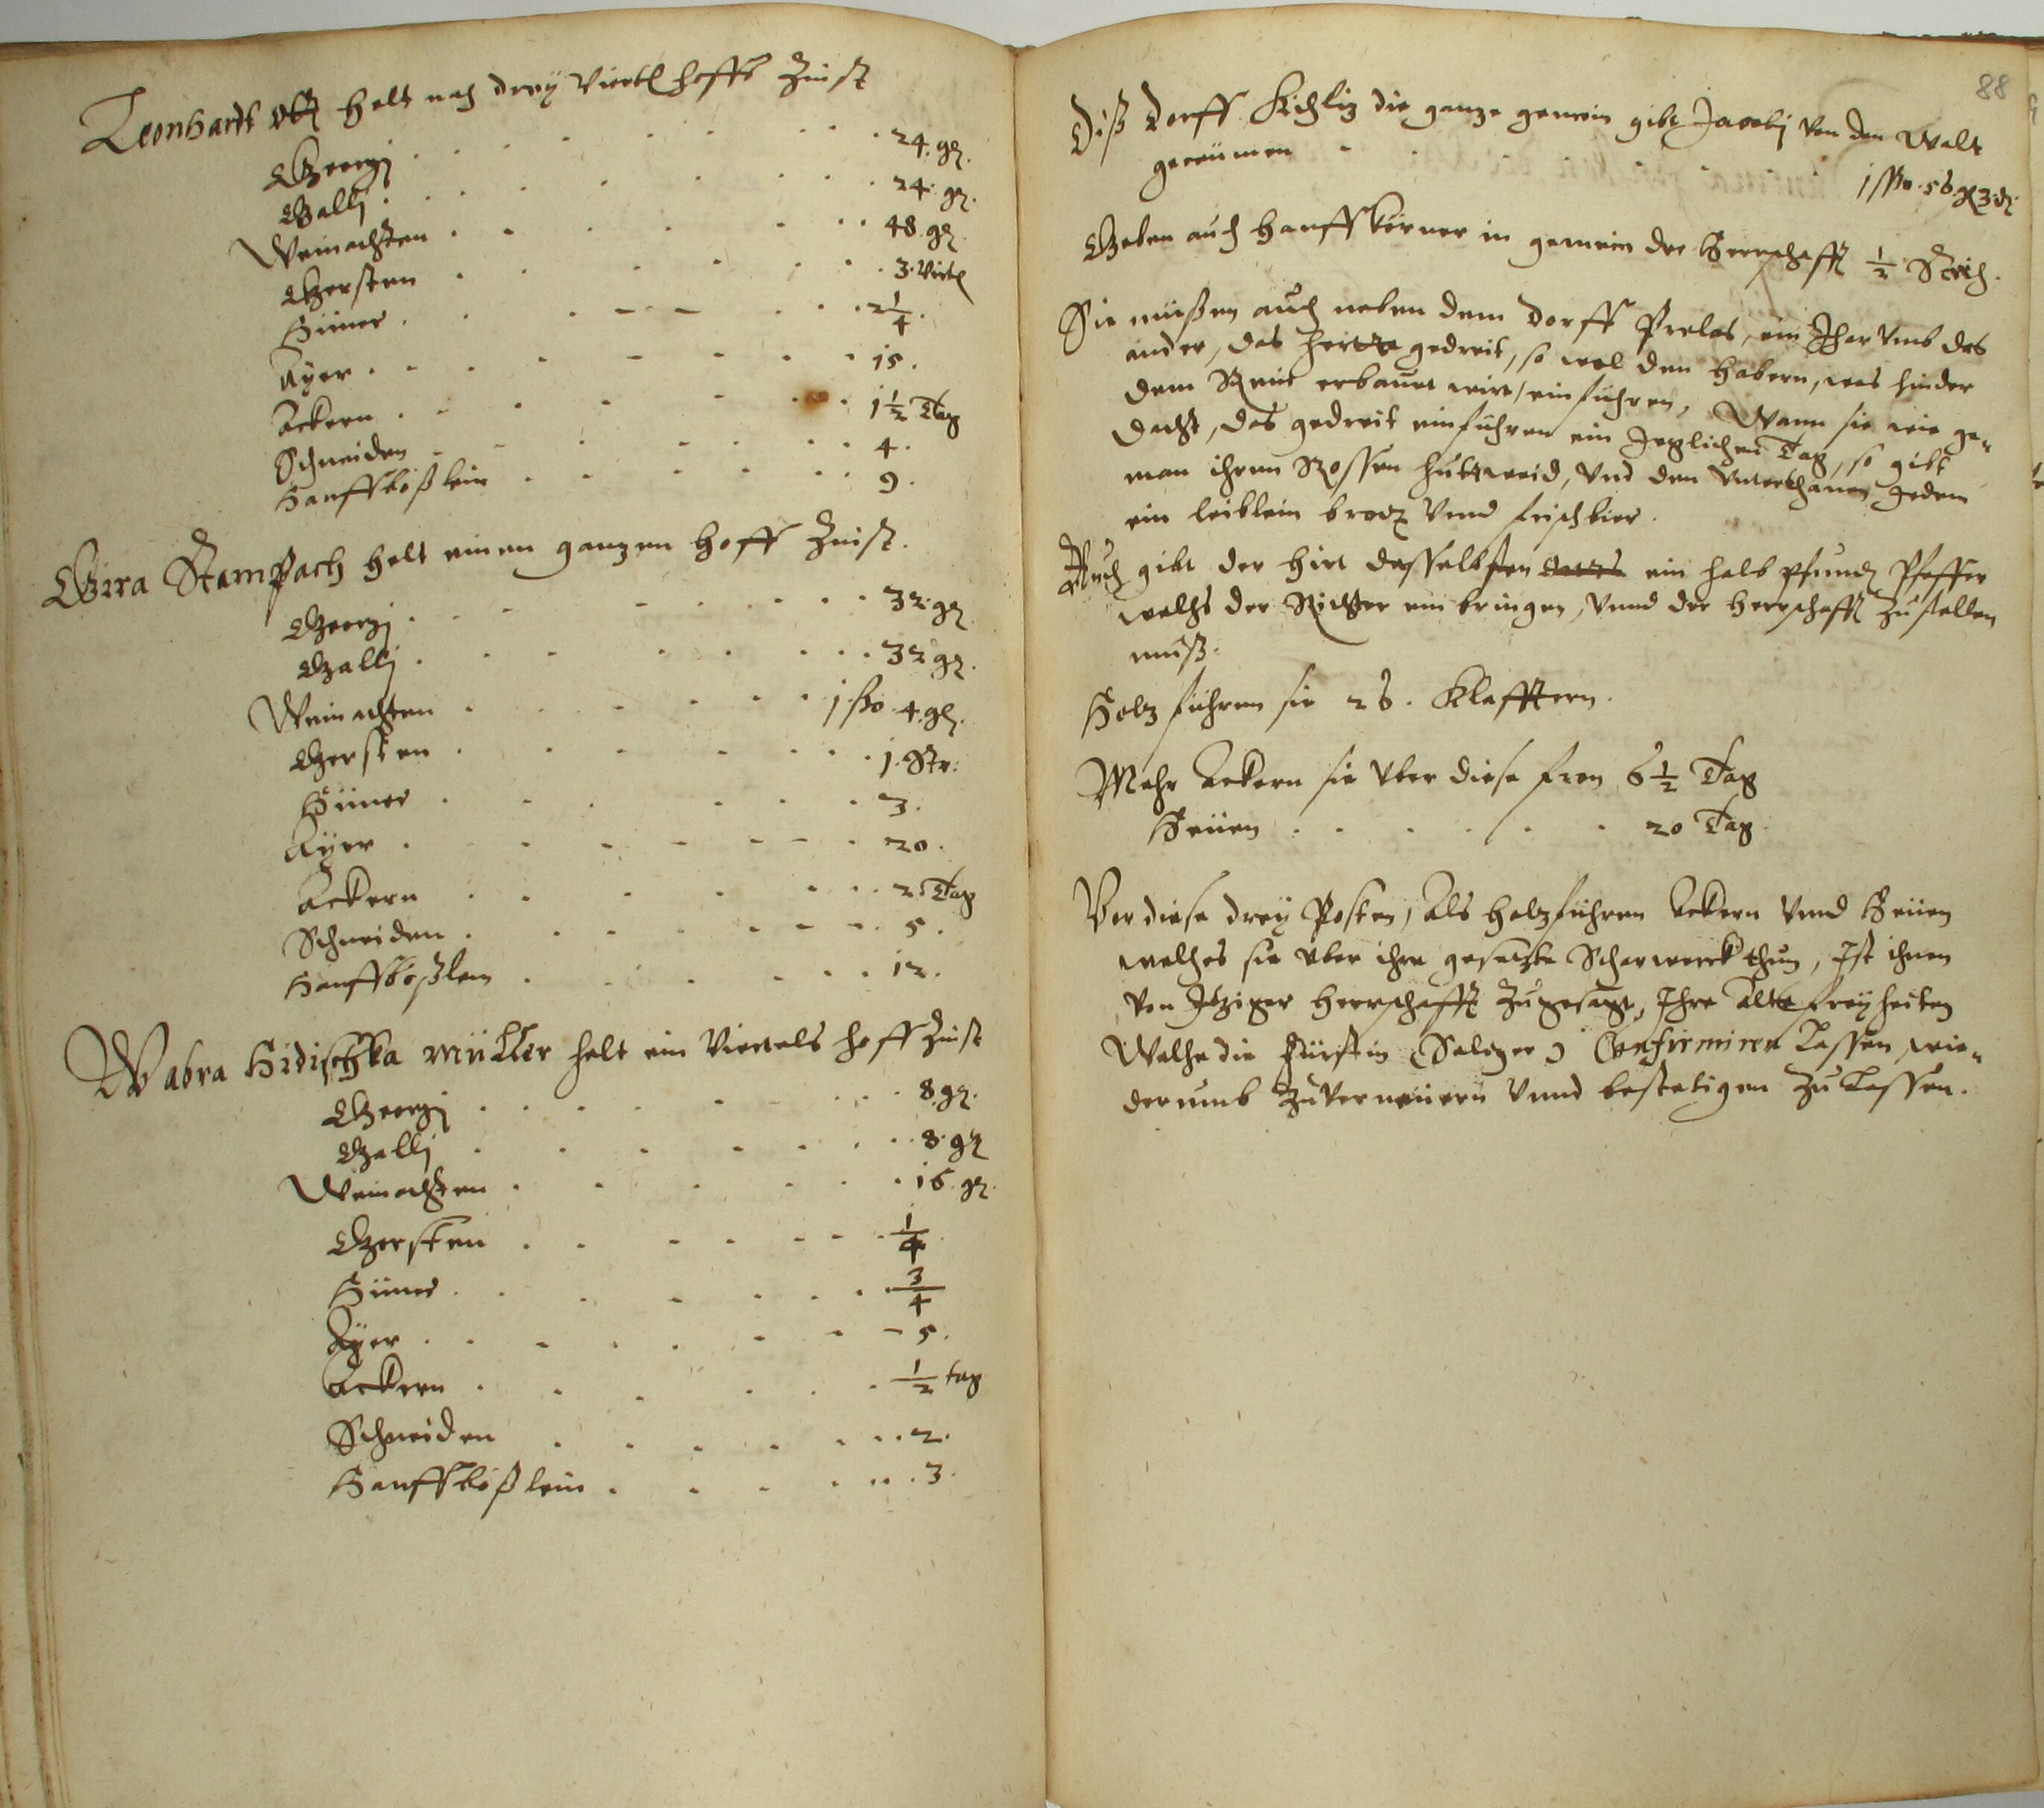 Leonhardt Ott helt nach drey Viertl hoffs Zinst
Georgj . . . 24. gr.
Gallj . . . 24. gr.
Weinachten . . . 48. gr.
Gersten . . . 3. Virtl
Hüner . . . 2 1/4.
Ayer . . . 15.
Ackern . . . 1 1/2 Tag
Schneiden . . . 4.
Hanffkößlein . . . 9.
Gira Stampach helt einen ganzen hoff Zinst.
Georgj . . . 32. gr.
Gallj . . . 32 gr.
Weinachten . . . 1 ßo 4. gr.
Gersten . . . 1. Str:
Hüner . . . 3.
Ayer . . . 20.
Ackern . . . 2. Tag
Schneiden . . . 5.
Hanffkößlein . . . 12.
Wabra Hidischka Müller helt ein Viertels hoff Zinst
Georgj . . . 8. gr.
Gallj . . . 8. gr
Weinachten . . . 16. gr.
Gersten . . . 1/4
Hüner . . . 3/4
Ayer . . . 5.
Ackern . . . 1/2 tag
Schneiden . . . 2.
Hanffkößlein . . . 3.
88
Diß Dorff Kichliz die ganze gemein gibt Jacobj von den Walt
gereümen . . . 1 ßo. 56 gr 3 d.
Geben auch Hanffkörner in gemein der Herrschafft 1/2 Strich.
Sie müßen auch neben dem Dorff Prelas, ein Jhar vmb das
ander, das herte gedreit, so wol den Habern, was hinder
dem Reut erbauet wirt, einführen, Wann sie wie ge-
dacht, das gedreit einführen ein Jeglichen Tag, so gibt
man ihren Rossen huttweid, Vnd den Vnterthanen Jedem
ein leiblein brodt Vnnd frischbier.
Auch gibt der hirt desselbsten ein halb pfundt Pfeffer
welchs der Richter einbringen, Vnnd der Herrschafft Zustellen
muß.
Holz führen sie 26. Klafftern.
Mehr Ackern sie vber diese fron 6 1/2 Tag
Heüen . . . 20 Tag.
Vor diese drey Posten, Als holzführen Ackern Vnnd Heüen
welches sie vber ihre gesetzte Scharwerck thun, Ist ihnen
von Jtziger Herrschafft Zugesagt, Ihre Alte freyheiten
Welche die Fürstin (Seliger) Confirmiren Lassen, wie-
derumb Zuverneüern Vnnd bestetigen Zu Lassen.